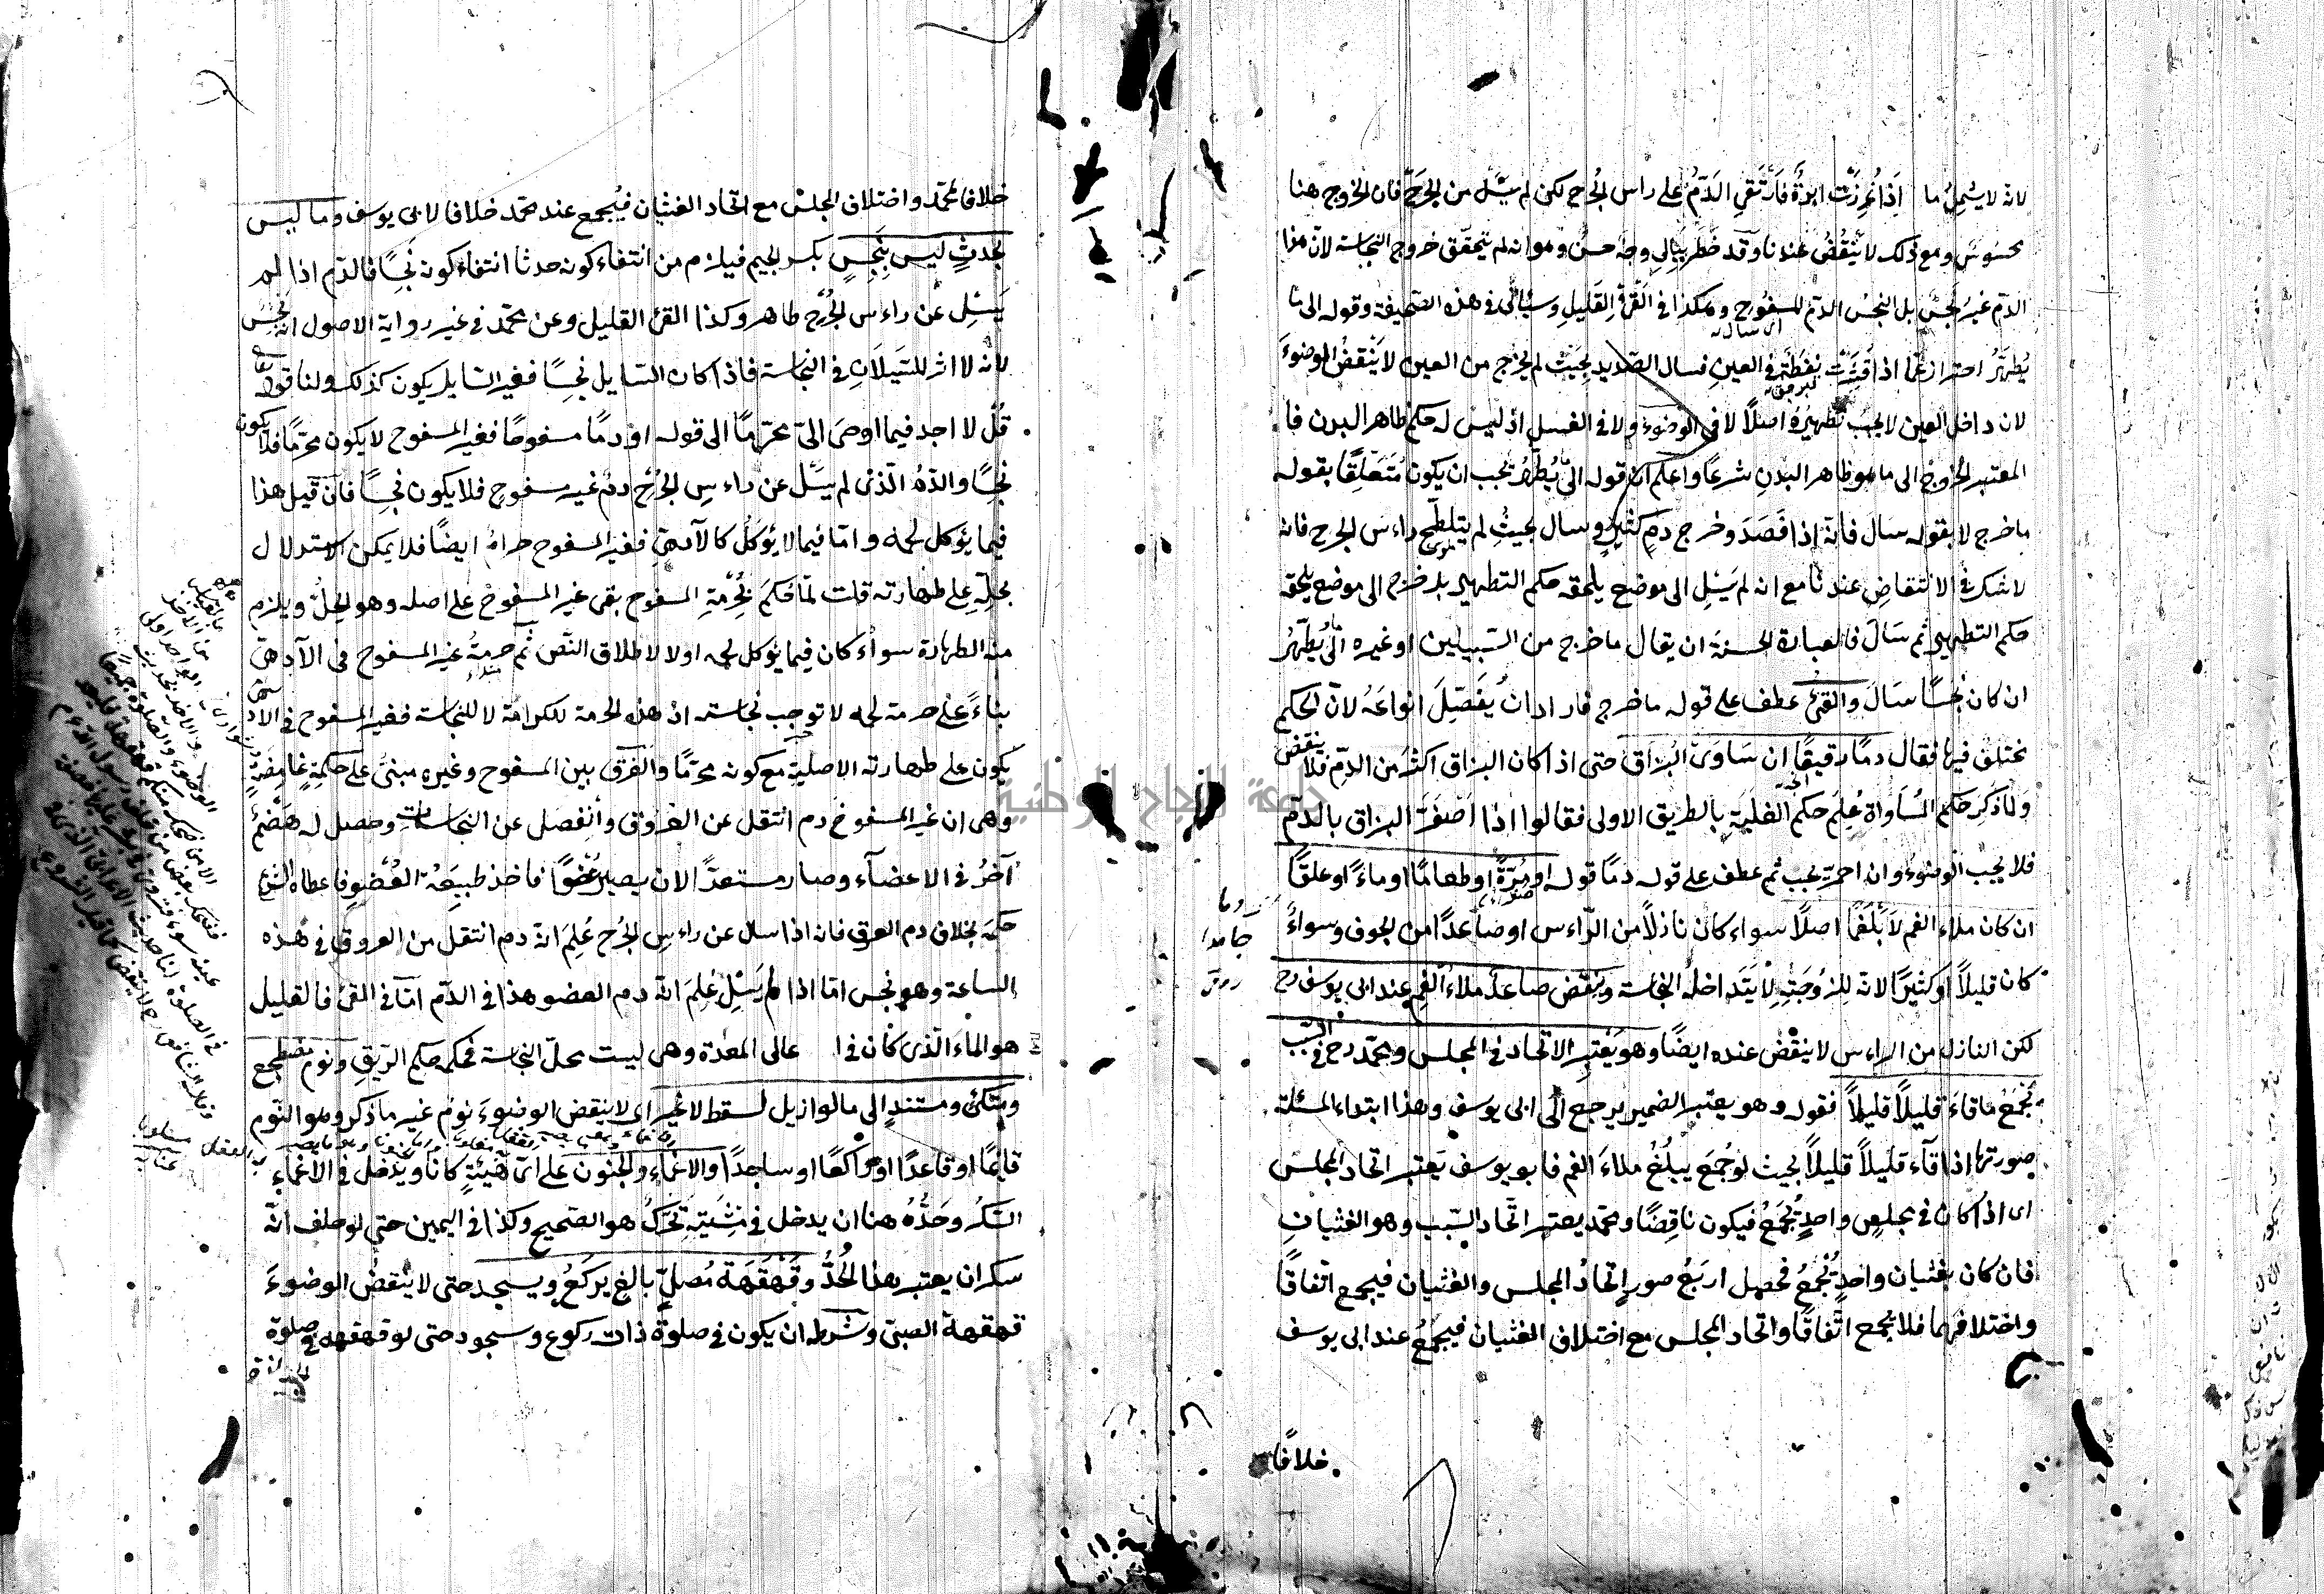 لانه لا يشمل ما اذا غرزت ابرة فارتقى الدم على راس الجرح لكن لم يسل من الجرح فان الخروج هنا
محسوس ومع ذلك لا ينقض عندنا وقد خطر ببالى وجه حسن وهو انه لم يتحقق خروج النجاسة لان هذا
الدم غير نجس بل النجس الدم المسفوح وهكذا في القئ القليل وسيأتى في هذه الصحيفة وقوله الى ما
يطهر احتراز عما اذا قشرت نفطة في العين فسال الصديد بحيث لم يخرج من العين لا ينقض الوضوء
لان داخل العين لا يجب تطهيره اصلا لا في الوضوء ولا في الغسل اذ ليس له حكم ظاهر البدن فا
المعتبر الخروج الى ما هو ظاهر البدن شرعا واعلم ان قوله الى ما يطهر يجب ان يكون متعلقا بقوله
ما خرج لا بقوله سال فانه اذا فصد وخرج دم كثير وسال بحيث لم يتلطخ راس الجرح فانه
لا شك في الانتقاض عندنا مع انه لم يسل الى موضع يلحقه حكم التطهير بل خرج الى موضع يلحقه
حكم التطهير ثم سال فالعبارة الحسنة ان يقال ما خرج من السبيلين او غيره الى ما يطهر
ان كان نجسا سال والقئ عطف على قوله ما خرج فاراد ان يفصل انواعه لان الحكم
مختلف فيها فقال دما رقيقا ان ساوى البزاق حتى اذا كان البزاق اكثر من الدم فلا ينقض
ولما ذكر حكم المساواة علم حكم الغلبة بالطريق الاولى فقالوا اذا اصفر البزاق بالدم
فلا يجب الوضوء وان احمر يجب ثم عطف على قوله دما قوله او مرة او طعاما او ماء او علقا
ان كان ملاء الفم لا بلغما اصلا سواء كان نازلا من الراس او صاعدا من الجوف وسواء
كان قليلا او كثيرا لانه للزوجته لا يتداخله النجاسة وينقض صاعد ملاء الفم عند ابى يوسف رح
لكن النازل من الراس لا ينقض عنده ايضا وهو يعتبر الاتحاد في المجلس ومحمد رح في السبب
بجمع ما قاء قليلا قليلا فقوله وهو يعتبر الضمير يرجع الى ابى يوسف وهذا ابتداء المسئلة
صورتها اذا قاء قليلا قليلا بحيث لو جمع يبلغ ملاء الفم فابو يوسف يعتبر اتحاد المجلس
اى اذا كان في مجلس واحد يجمع فيكون ناقضا ومحمد يعتبر اتحاد السبب وهو الغثيان
فان كان بغثيان واحد يجمع فحصل اربع صور اتحاد المجلس والغثيان فيجمع اتفاقا
واختلافهما فلا يجمع اتفاقا واتحاد المجلس مع اختلاف الغثيان فيجمع عند ابى يوسف
خلافا
خلافا لمحمد واختلاف المجلس مع اتحاد الغثيان فيجمع عند محمد خلافا لابى يوسف وما ليس
بحدث ليس بنجس بكسر الجيم فيلزم من انتفاء كونه حدثا انتفاء كونه نجسا فالدم اذا لم
يسل عن راس الجرح طاهر وكذا القئ القليل وعن محمد في غير رواية الاصول انه نجس
لانه لا اثر للسيلان في النجاسة فاذا كان السايل نجسا فغير السايل يكون كذلك ولنا قوله تعا
قل لا اجد فيما اوحى الى محرما الى قوله او دما مسفوحا فغير المسفوح لا يكون محرما فلا يكون
نجسا والدم الذى لم يسل عن راس الجرح دم غير مسفوح فلا يكون نجسا فان قيل هذا
فيما يؤكل لحمه واما فيما لا يؤكل كالآدمى فغير المسفوح حرام ايضا فلا يمكن الاستدلال
بحله على طهارته قلت لما حكم بحرمة المسفوح بقى غير المسفوح على اصله وهو الحل ويلزم
منه الطهارة سواء كان فيما يؤكل لحمه او لا لاطلاق النص ثم حرمة غير المسفوح في الآدمى
بناء على حرمة لحمه لا توجب نجاسته اذ هذه الحرمة للكرامة لا للنجاسة فغير المسفوح في الادمى
يكون على طهارته الاصلية مع كونه محرما والفرق بين المسفوح وغيره مبنى على حكمة غامضة
وهى ان غير المسفوح دم انتقل عن العروق وانفصل عن النجاسات وحصل له هضم
آخر في الاعضاء وصار مستعدا لان يصير عضوا فاخذ طبيعة العضو فاعطاه الشرع
حكمه بخلاف دم العرق فانه اذا سال عن راس الجرح علم انه دم انتقل من العروق في هذه
الساعة وهو نجس اما اذا لم يسل علم انه دم العضو هذا في الدم اما في القئ فالقليل
هو الماء الذى كان في اعالى المعدة وهى ليست محل النجاسة فحكمه حكم الريق ونوم مضطجع
ومتكئ ومستند الى ما لو ازيل لسقط لا غير اى لا ينقض الوضوء نوم غير ما ذكر وهو النوم
قائما او قاعدا او راكعا او ساجدا والاغماء والجنون على اى هيئة كانا ويدخل في الاغماء
السكر وحده هنا ان يدخل في مشيته تحرك هو الصحيح وكذا في اليمين حتى لو حلف انه
سكران يعتبر هذا الحد وقهقهة مصلى بالغ يركع ويسجد حتى لا ينقض الوضوء
قهقهة الصبى وشرط ان يكون في صلوة ذات ركوع وسجود حتى لو قهقهه في صلوة
جامعة النجاح الوطنية